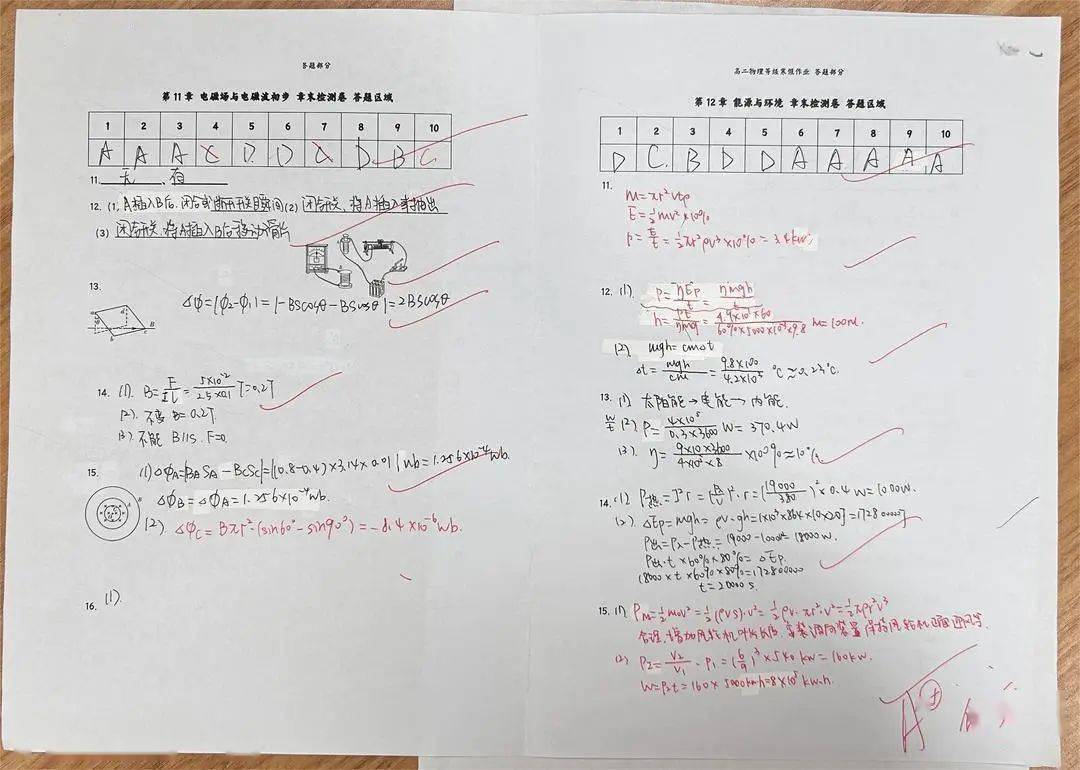 答题部分
第11章 电磁场与电磁波初步 章末检测卷 答题区域
1 2 3 4 5 6 7 8 9 10
A A A C D D C D B C
11. 无 、有
12. (1) A插入B后,闭合或断开开关瞬间 (2) 闭合开关,将A插入或拔出
(3) 闭合开关,将A插入B后移动滑片
13.
ΔΦ=|Φ2-Φ1|=|-BScosθ-BScosθ|=2BScosθ
14. (1). B=F/IL=5×10^-2/2.5×0.1 T=0.2T
(2). 不变 B=0.2T.
(3). 不能 B∥S. F=0.
15. (1) ΔΦA=|BASA-BCSC|=|(0.8-0.4)×3.14×0.01| Wb=1.256×10^-4 Wb.
ΔΦB=ΔΦA=1.256×10^-4 Wb.
(2). ΔΦC=Bπr²·(sin60°-sin90°)=-8.4×10^-6 Wb.
16. (1).
高二物理等级寒假作业 答题部分
第12章 能源与环境 章末检测卷 答题区域
1 2 3 4 5 6 7 8 9 10
D C. B D D A A A A A
11. m=πr²vtρ
E=½mv²×10%
P=E/t=½πr²ρv³×10%=3.4kw.
12. (1). P=ηEp/t=ηmgh/t
h=Pt/ηmg=4.9×10^5×60/60%×5000×10^3×9.8 m=100m.
(2). mgh=cmΔt
Δt=mgh/cm=9.8×100/4.2×10^3 ℃≈0.23℃.
13. (1) 太阳能→电能→内能.
W/t (2) P=4×10^5/0.3×3600 W=370.4W
(3). η=9×10×3600/4×10^5×8 ×100%≈10%
14. (1) P热=I²r=(P/U)²·r=(19000/380)²×0.4W=1000W.
(2). ΔEp=mgh=ρV·gh=(1×10^3×864×10×20)J=172800000J
P出=P入-P热=19000-1000=18000W.
P出·t×60%×80%=ΔEp.
18000×t×60%×80%=172800000
t=20000s.
15. (1) P风=½m0v²=½(ρvS)·v²=½ρv·πr²·v²=½πρr²v³
合理,增加风轮机叶片长度,安装调向装置保持风轮机正面迎风等
(2) P2=V2/V1·P1=(6/9)³×540kw=160kw.
W=P2t=160×5000kw·h=8×10^5kw·h.
A+